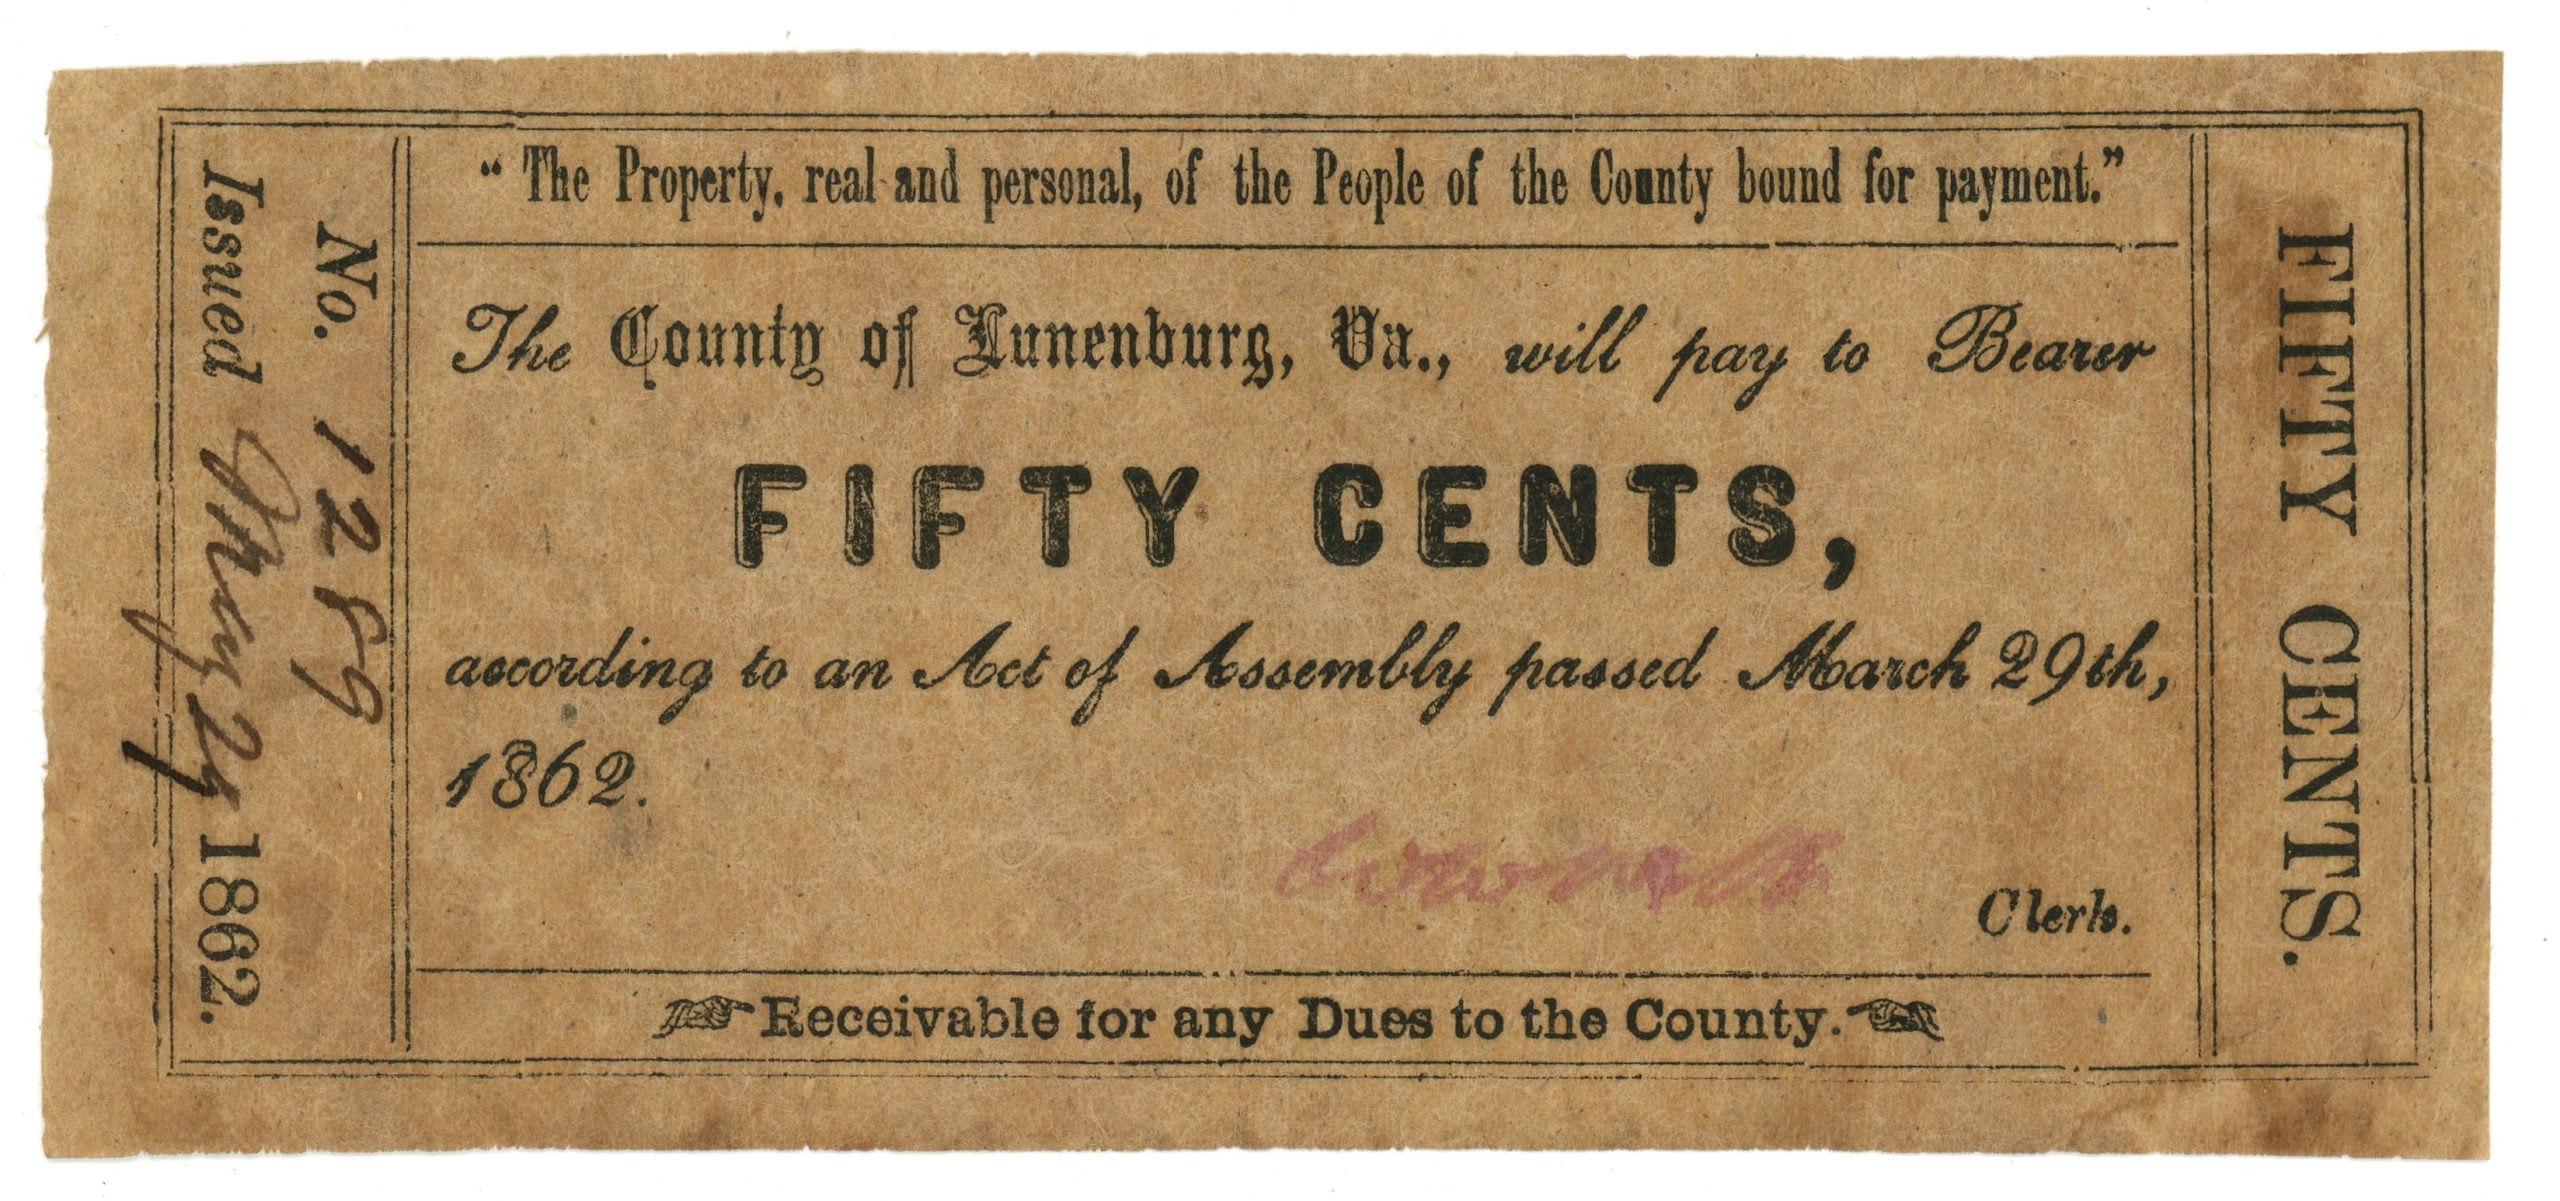 "The Property, real and personal, of the People of the County bound for payment."
The County of Lunenburg, Va., will pay to Bearer
FIFTY CENTS,
according to an Act of Assembly passed March 29th,
1862.
Clerk.
☞ Receivable for any Dues to the County. ☜
No. 1289
Issued May 24 1862.
FIFTY CENTS.